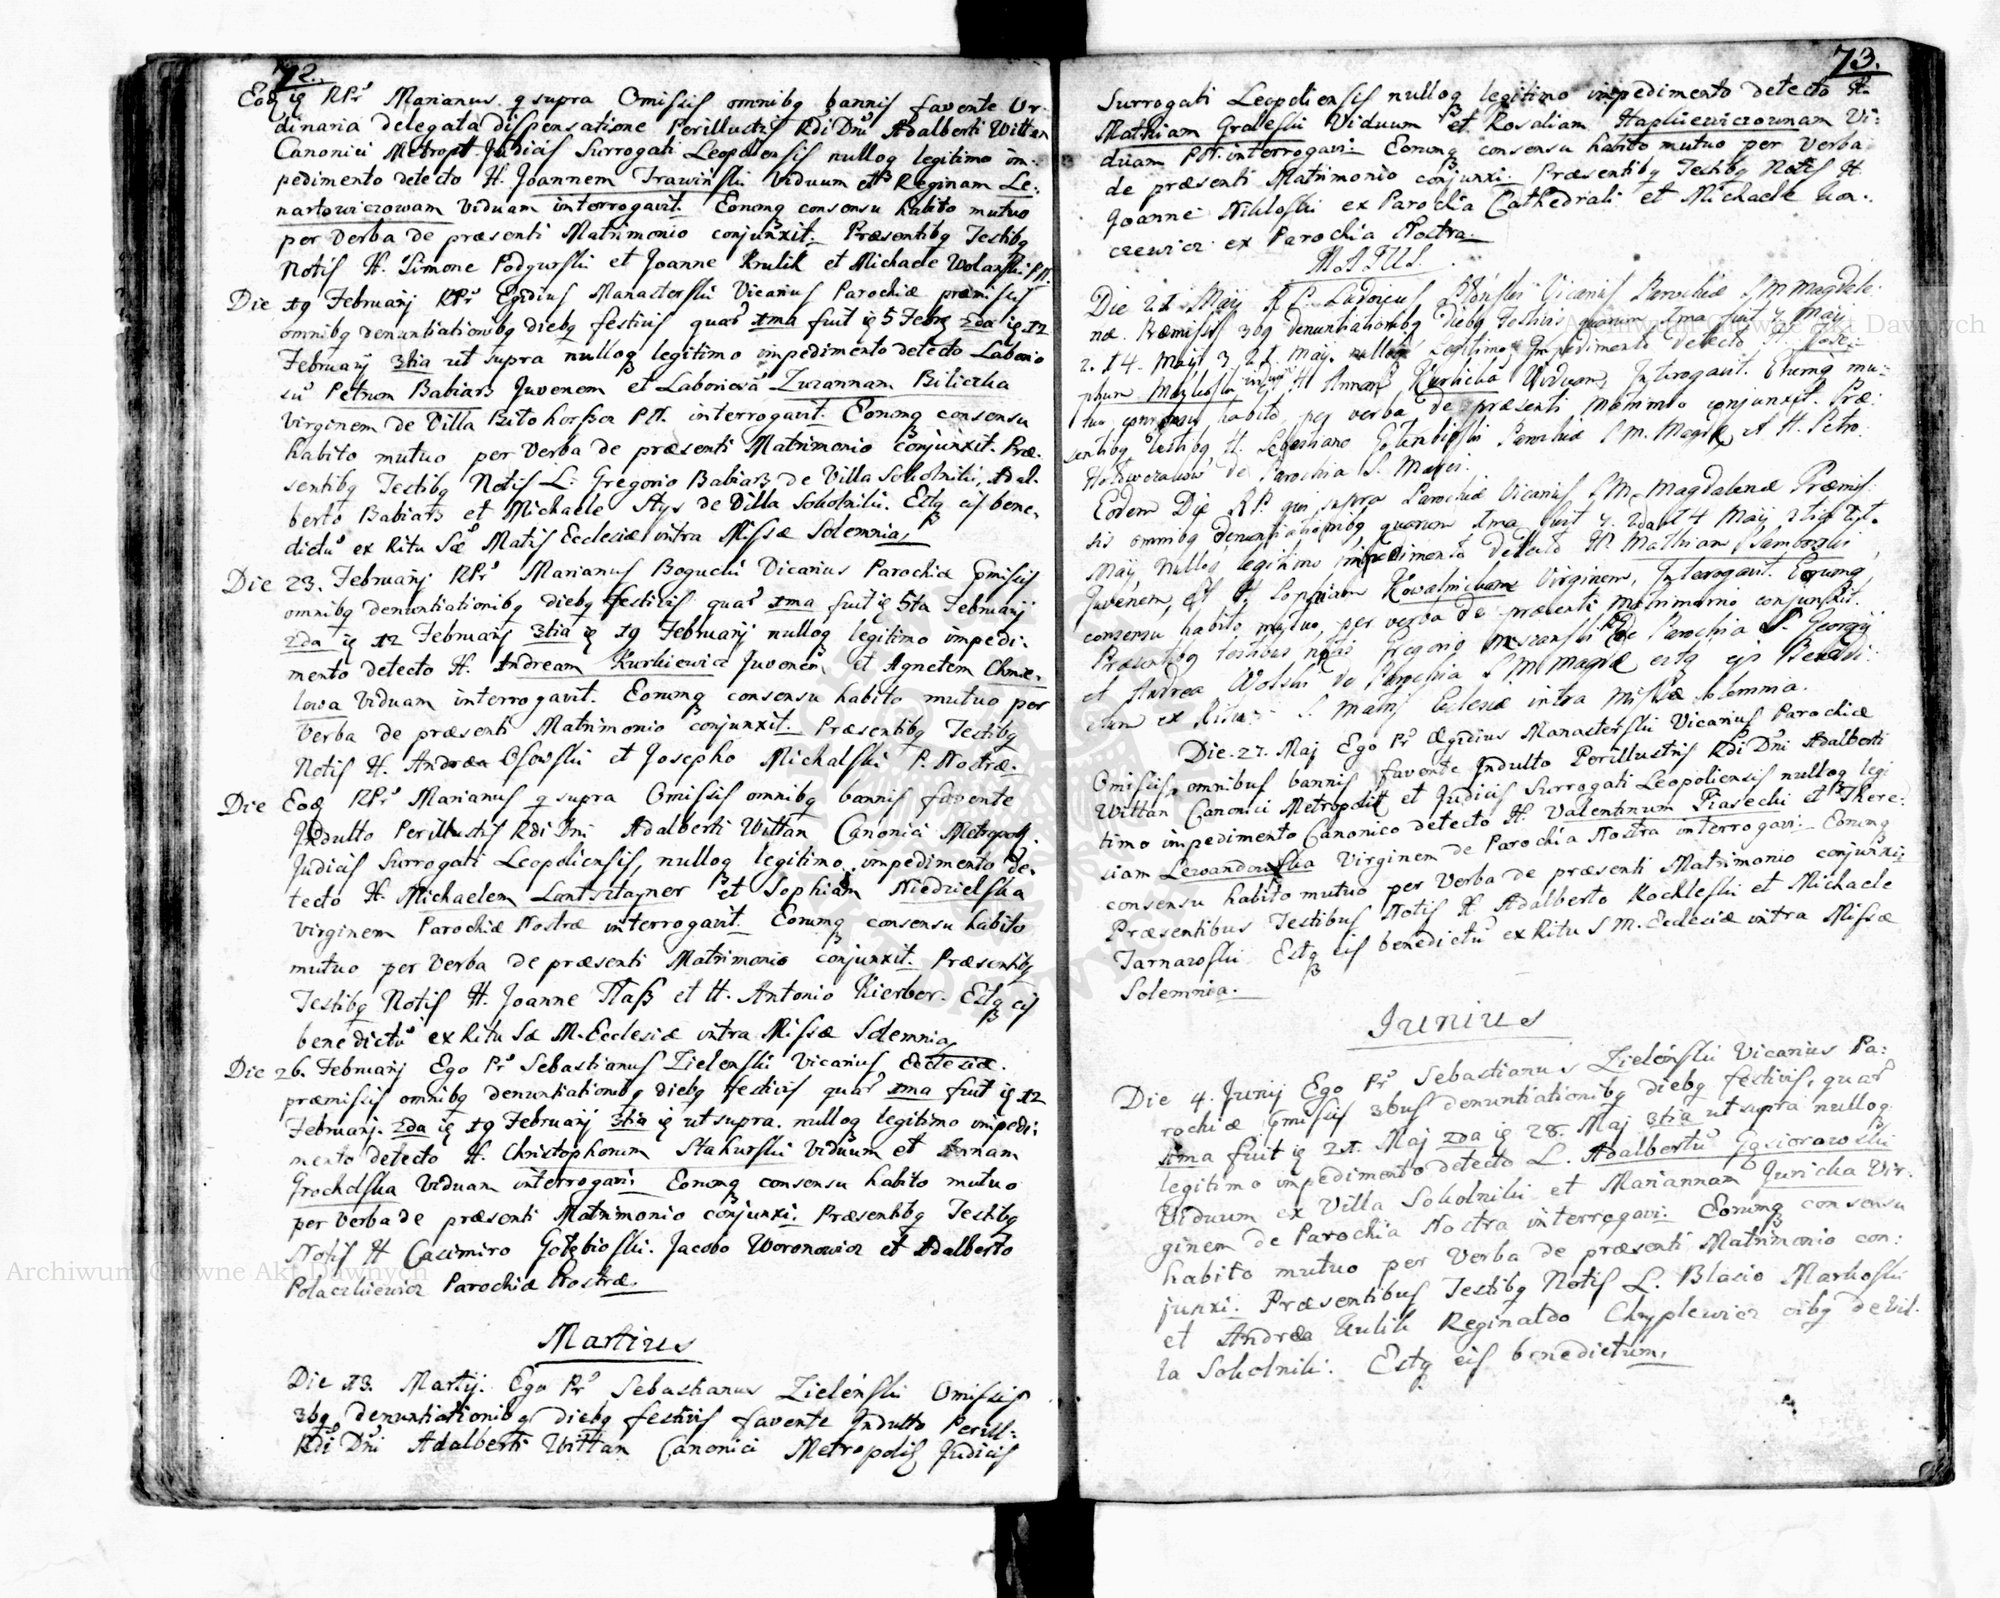 72.
Eoq ię RPr Marianus q supra Omissis omnibq bannis favente Or-
dinaria delegata dispensatione Perillustris Rdi Dni Adalberti Wittan
Canonici Metropt. Judicis Surrogati Leopoliensis nulloq legitimo im-
pedimento detecto H. Joannem Trawinski Viduum et H Reginam Le-
nartowiczowam Viduam interrogavit. Eorumq consensu habito mutuo
per Verba de præsenti Matrimonio conjunxit. Præsentibq Testibq
Notis H. Simone Podgurski et Joanne Krulik et Michaele Wolanski P.N.
Die 19 Februarij RPr Egidius Manasterski Vicarius Parochiæ præmissis
omnibq denuntiationibq diebq festivis quar 1ma fuit ię 5 Febrq 2da ię 12
Februarij 3tia ut supra nulloq legitimo impedimento detecto Laborio
su Petrum Babiarz Juvenem et Laboriosa Zuzannam Biliczka
Virginem de Villa Bitohorszcza PN. interrogavit. Eorumq consensu
habito mutuo per Verba de præsenti Matrimonio conjunxit. Præ-
sentibq Testibq Notis L. Gregorio Babiarz de Villa Sokolniki, Adal-
berto Babiarz et Michaele Stys de Villa Sokolniki. Estq eis bene-
dictu ex Ritu Sæ Matis Ecclesiæ intra Missæ Solemnia.
Die 23. Februarij RPr Marianus Bogucki Vicarius Parochiæ Pmissis
omnibq denuntiationibq diebq festivis quar 1ma fuit ię 5ta Februarij
2da ię 12 Februarij 3tia ię 19 Februarij nulloq legitimo impedi-
mento detecto H. Andream Kurkiewicz Juvenem et Agnetem Chmie-
lowa Viduam interrogavit. Eorumq consensu habito mutuo per
Verba de præsenti Matrimonio conjunxit. Præsentibq Testibq
Notis H. Andrea Osowski et Josepho Michalski P. Nostræ.
Die Eoq RPr Marianus q supra Omissis omnibq bannis favente
Indulto Perillustris Rdi Dni Adalberti Wittan Canonici Metropol.
Judicis Surrogati Leopoliensis, nulloq legitimo impedimento de-
tecto H. Michaelem Lantsztayner et Sophiam Niedzielska
Virginem Parochiæ Nostræ interrogavit. Eorumq consensu habito
mutuo per Verba de præsenti Matrimonio conjunxit. Præsentibq
Testibq Notis H. Joanne Hasz et H. Antonio Kierber. Estq eis
benedictu ex Ritu Sæ M. Ecclesiæ intra Missæ Solemnia
Die 26. Februarij Ego Pr Sebastianus Zielenski Vicarius Ecclesiæ.
præmissis omnibq denuntiationibq diebq festivis quar 1ma fuit ię 12
Februarij. 2da ię 19 Februarij 3tia ię ut supra. nulloq legitimo impedi-
mento detecto H. Christophorum Stakurski Viduum et Annam
Grocholska Viduam interrogavi. Eorumq consensu habito mutuo
per Verba de præsenti Matrimonio conjunxi. Præsentibq Testibq
Notis H Casimiro Gołębioski. Jacobo Woronowicz et Adalberto
Polaczkiewicz Parochiæ Nostræ.
Martius
Die 13. Martij. Ego Pr Sebastianus Zielénski Omissis
3bq denuntiationibq diebq festivis favente Indulto Perill-
Rdi Dni Adalberti Wittan Canonici Metropolis Judicis
73.
Surrogati Leopoliensis nulloq legitimo impedimento detecto H.
Mathiam Graleski Viduum et Rosaliam Hapkiewiczownam Vi-
duam PN. interrogavi. Eorumq consensu habito mutuo per Verba
de præsenti Matrimonio conjunxi. Præsentibq Testibq Notis H.
Joanne Nikloski ex Parochia Cathedrali et Michaele Kon-
czewicz ex Parochia Nostra.
MAIUS.
Die 21 Maij R P. Ludovicus Vicarius Parochiæ S M Magdale-
næ. Præmissis 3bq denuntiationibq diebq festivis quorum 1ma fuit 7 Maij
2. 14. Maij 3. 21. Maij. nulloq Legitimo Impedimento detecto H. Jose-
phum viduum et H Annam Kurlicka Viduam, Interogavit. Eorumq mu-
tuo consensu habito per verba de præsenti Matrimo conjunxit. Præ-
sentibq testibq H. Sebastiano Gołembioski Parochiæ S M. Magdæ et H. Petro
de Parochia S. Mariæ.
Eodem Die R P. qui supra Parochiæ Vicarius S M. Magdalenæ Præmis-
sis omnibq denuntiationibq quorum 1ma fuit 7. 2da 14 Maij 3tia 21.
Maij nulloq legitimo impedimento detecto H. Mathiam Samborski
Juvenem, et H. Sophiam Kowalnickam Virginem, Interogavit. Eorumq
consensu habito mutuo per verba de præsenti Matrimonio conjunxit.
Præsentibq testibus notis Gregorio de Parochia S. Georgij
et Andrea Wolski de Parochia S M Magdæ estq eis Benedi-
ctum ex Ritu S. Matris Eclesiæ intra Missæ solemnia.
Die. 27. Maj Ego Pr Ægidius Manasterski Vicarius Parochiæ
Omissis omnibus bannis favente Indulto Perillustris Rdi Dni Adalberti
Wittan Canonici Metropolit et Judicis Surrogati Leopoliensis nulloq legi
timo impedimento Canonico detecto H. Valentinum Piasecki et There-
siam Lewandowska Virginem de Parochia Nostra interrogavi. Eorumq
consensu habito mutuo per Verba de præsenti Matrimonio conjunxi
Præsentibus Testibus Notis H. Adalberto Kochleski et Michaele
Tarnawski Estq eis benedictu ex Ritu S M. Ecclesiæ intra Missæ
Solemnia.
Junius
Die 4. Junij Ego Pr Sebastianus Zielénski Vicarius Pa-
rochiæ Pmissis 3bus denuntiationibq diebq festivis, quar
1ma fuit ię 21. Maj 2da ię 28. Maj 3tia ut supra nulloq
legitimo impedimento detecto L. Adalbertu Gąsiorowski
Viduum ex Villa Sokolniki et Mariannam Juricka Vir-
ginem de Parochia Nostra interrogavi. Eorumq consensu
habito mutuo per Verba de præsenti Matrimonio con-
junxi. Præsentibus Testibq Notis L. Blasio Markoski
et Andrea Kulik Reginaldo Chryplewicz oibq de Vil-
la Sokolniki. Estq eis benedictum.
Archiwum Główne Akt Dawnych
Archiwum Główne Akt Dawnych